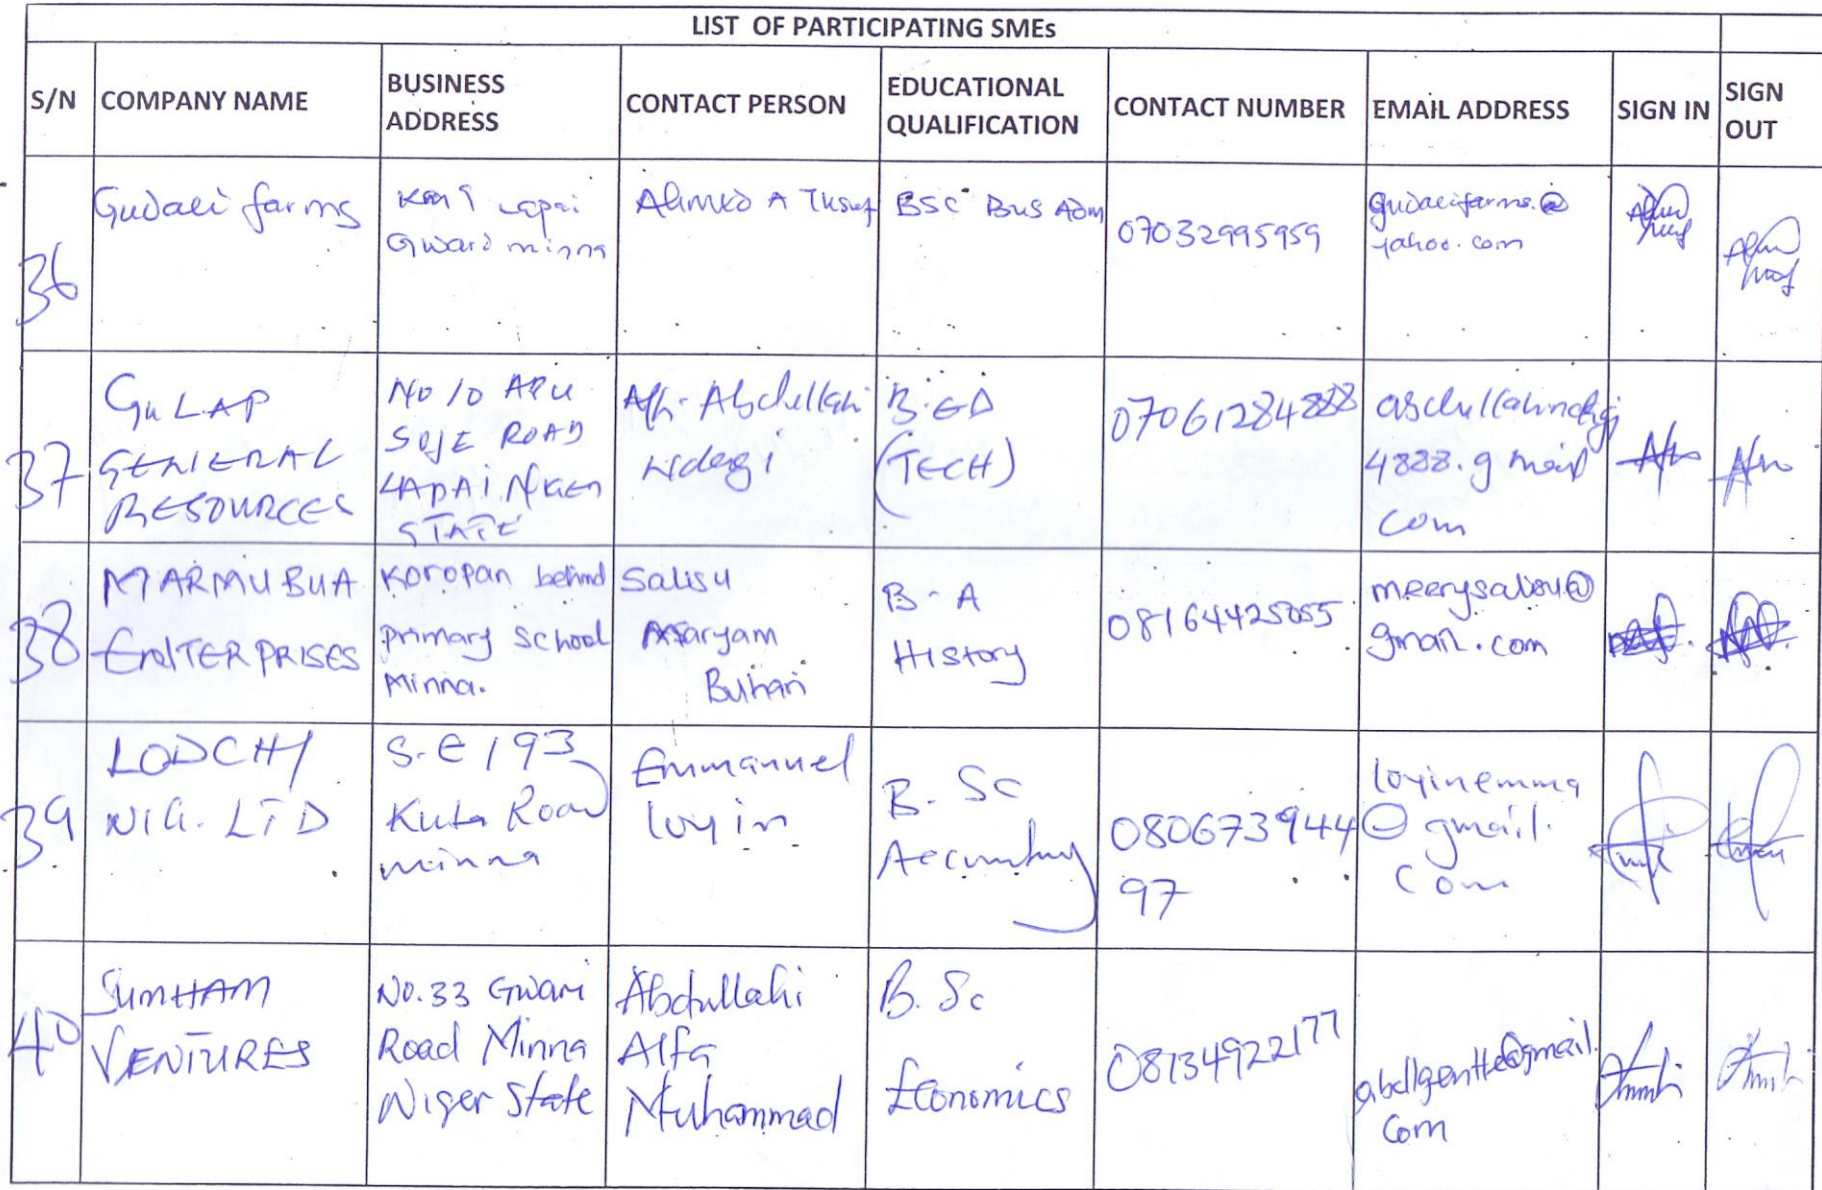 LIST OF PARTICIPATING SMEs
S/N
COMPANY NAME
BUSINESS
ADDRESS
CONTACT PERSON
EDUCATIONAL
QUALIFICATION
CONTACT NUMBER
EMAIL ADDRESS
SIGN IN
SIGN
OUT
36
Gudali farms
Lapai
Gwari minna
Ahmed A Yusuf
BSC Bus Adm
07032995959
gudalifarms@
yahoo.com
37
GuLAP
GENERAL
RESOURCES
No 10
SOJE ROAD
LAPAI
STATE
Abdullahi
Ndagi
B.ED
(TECH)
07061284888
4888.gmail
com
38
MARMUBUA
EntTERPRISES
Koropan behind
primary school
Minna.
Salisu
Maryam
Buhari
B-A
History
08164425055
meerysalisu@
gmail.com
39
LODCHI
NIG. LTD
S.E 193
Kuta Road
minna
Emmanuel
loyin
B. Sc
Accounting
080673944
97
loyinemma
@gmail.
Com
40
SUMHAM
VENTURES
No.33 Gwari
Road Minna
Niger State
Abdullahi
Alfa
Muhammad
B. Sc
Economics
08134922177
abdlgentle@gmail.
Com